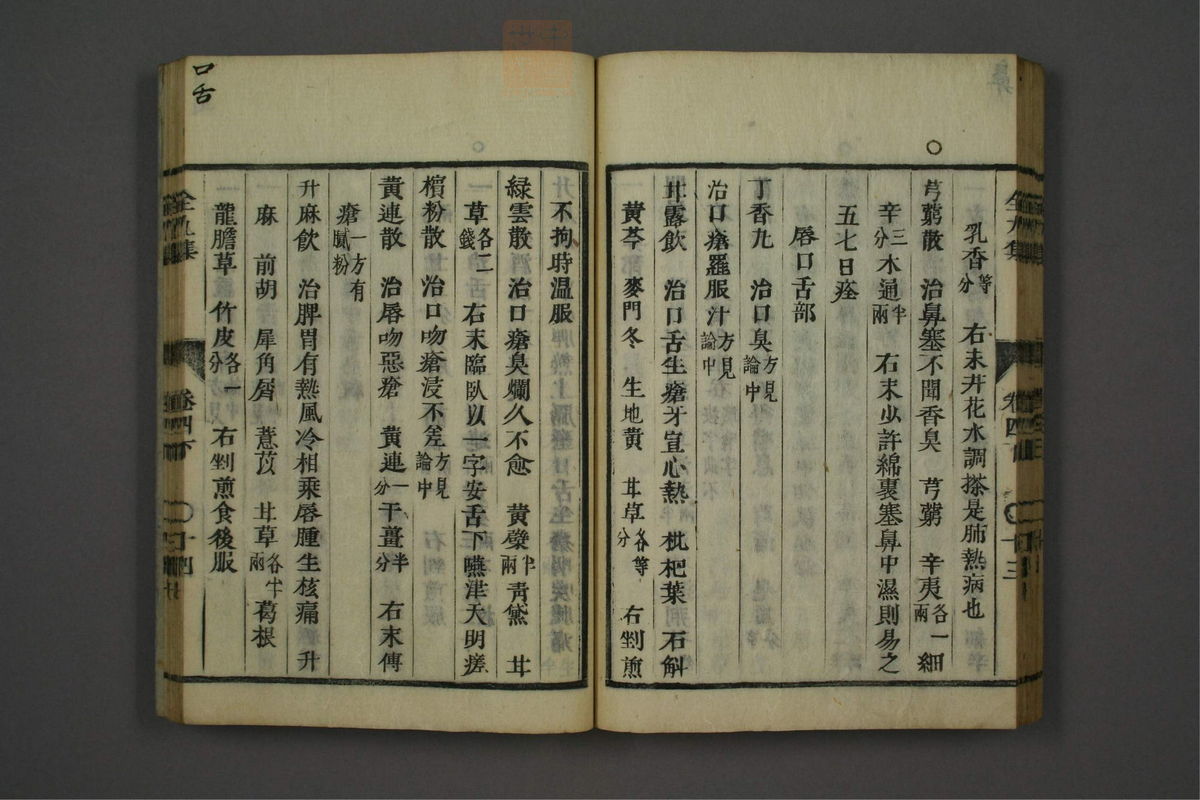 乳香等分　右末井花水調搽是肺熱病也
芎藭散　治鼻塞不聞香臭　芎藭　辛夷各一兩　細
辛三分　木通半兩　右末少許綿裹塞鼻中濕則易之
五七日痊
唇口舌部
丁香丸　治口臭方見論中
治口瘡羅服汁方見論中
甘露飲　治口舌生瘡牙宣心熱　枇杷葉　石斛
黃芩　麥門冬　生地黃　甘草各等分　右剉煎
不拘時温服
綠雲散　治口瘡臭爛久不愈　黃蘗半兩　靑黛　甘
草各二錢　右末臨臥以一字安舌下嚥津天明瘥
檳粉散　治口吻瘡浸不差方見論中
黃連散　治唇吻惡瘡　黃連一分　干薑半分　右末傅
瘡一方有膩粉
升麻飲　治脾胃有熱風冷相乘唇腫生核痛　升
麻　前胡　犀角屑　薏苡　甘草各半兩　葛根
龍膽草　竹皮各一分　右剉煎食後服
口舌
鼻
全九集
卷四下
十三
全九集
卷四下
十四